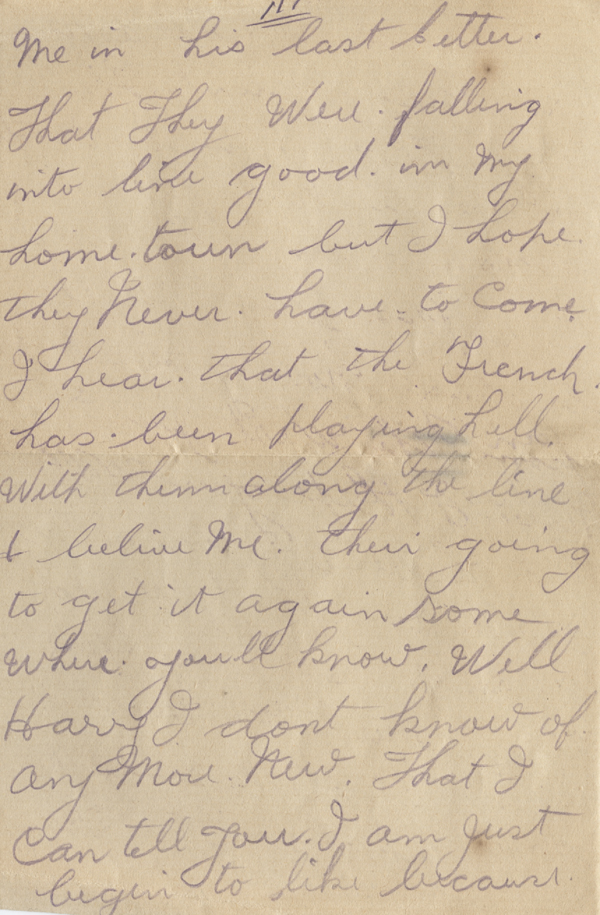 III
Me in his last letter.
That They Were. falling
into line good. in my
home. town but I hope.
they Never. have. to Come.
I hear. that the French.
has. been playing hell.
With them along the line
& belive Me. their going
to get it again some
Where. you'll know. Well
Harry I dont know of
any More New. That I
Can tell you. I am just
begin to like because.